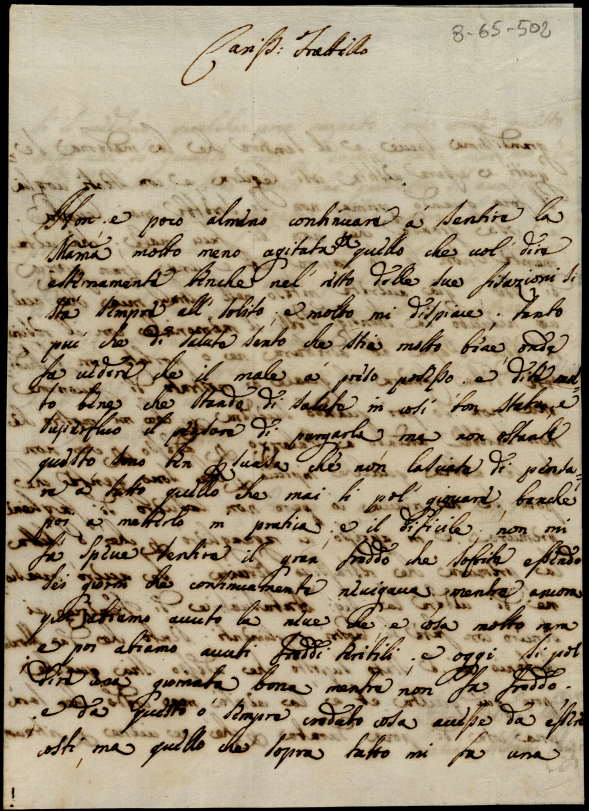 8-65-502
Cariss: Fratello
Non e poco almeno continuare á sentire la
Mamá molto meno agitata quello che vol dire
esternamente benche nel resto delle sue fisazioni si
sta sempre all' solito e molto mi dispiace. tanto
piú che di salute sento che stia molto bene onde
fa vedere che il male á preso posesso. e dite mol
to bene che stando di salute in cosí bon stato e
superfluo il pensare di purgarla ma non ostante
questo sono ben persuasa che non lasciate di pensa=
re a tutto quello che mai li pol giovare benche
poi a metterlo in pratica, e il dificile. non mi
fa specie sentire il gran freddo che sofrite essendo
sei giorni che continuamente nevigava mentre ancora
qui abiamo avuto la neve che e cosa molto rara
e poi abiamo avuti freddi teribili. e oggi si pol
dire una giornata bona mentre non fa freddo.
e da questo o sempre creduto cosa avesse da essere
costi, ma quello che sopra tutto mi fa una